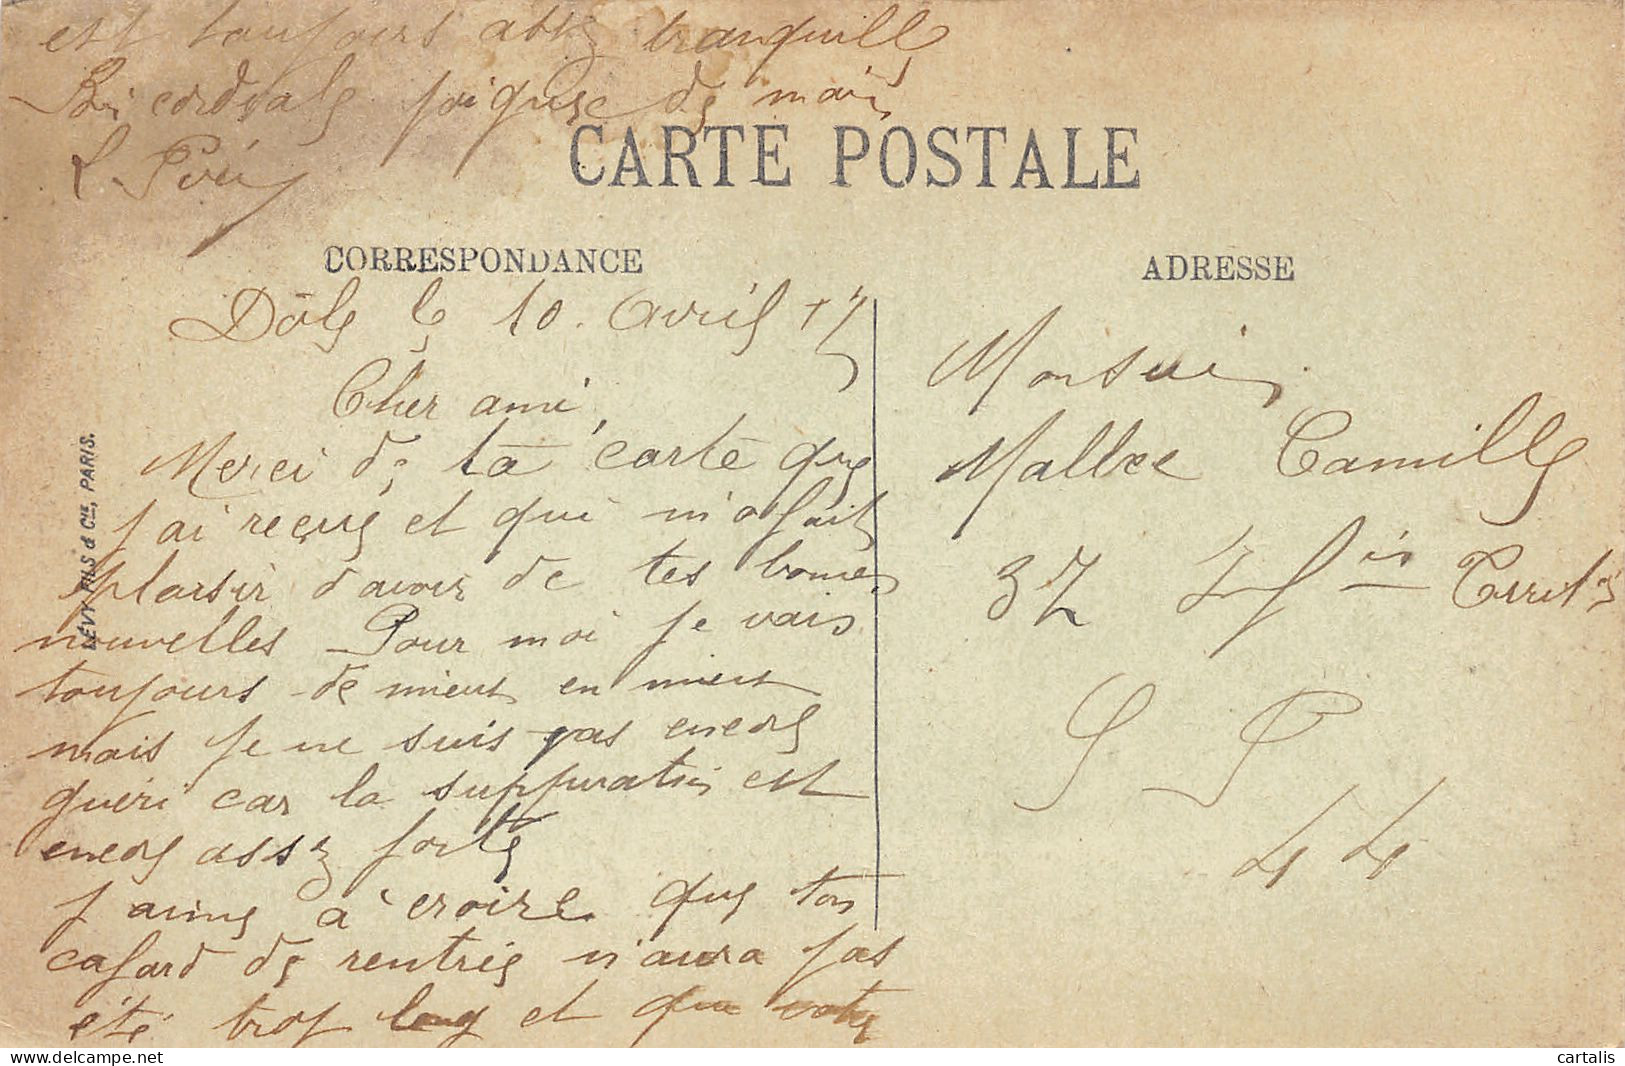 est toujours assez tranquille
cordiale poignee de main
CARTE POSTALE
CORRESPONDANCE
ADRESSE
Dôle le 10 Avril 17
Cher ami,
Merci de ta carte que
j'ai reçue et qui m'a fait
plaisir d'avoir de tes bonnes
nouvelles Pour moi je vais
toujours de mieux en mieux
mais je ne suis pas encore
guéri car la suppuration est
encore assez forte
j'aime à croire que ton
cafard de rentrée n'aura pas
été trop long et que votre
Monsieur
Camille
37 Territ
S P
44
LÉVY FILS & CIE, PARIS.
cartalis
www.delcampe.net